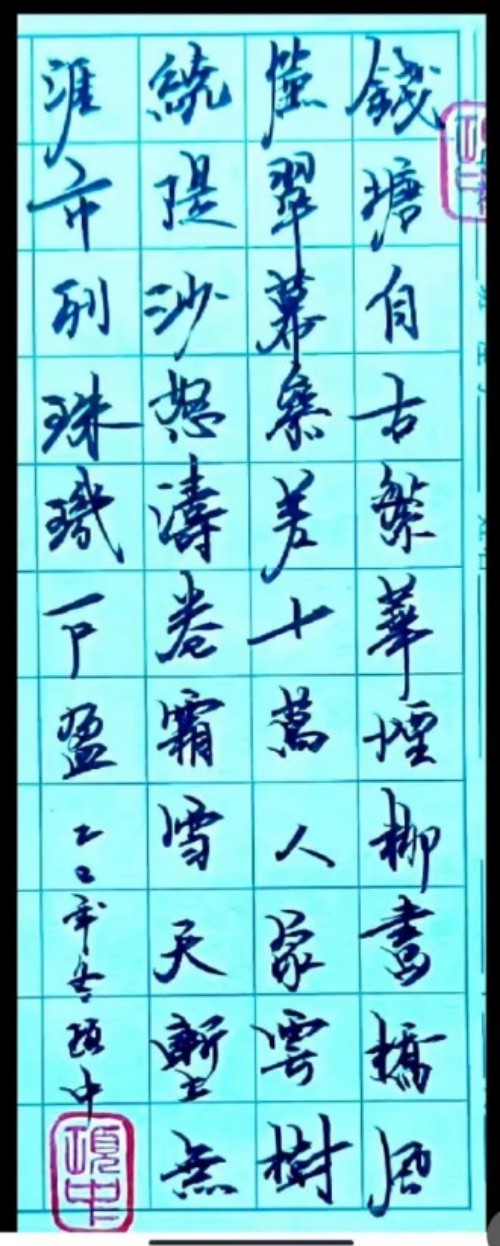 錢塘自古繁華煙柳畫橋風
簾翠幕參差十萬人家雲樹
繞隄沙怒濤卷霜雪天塹無
涯市列珠璣戶盈 年冬項中
項中